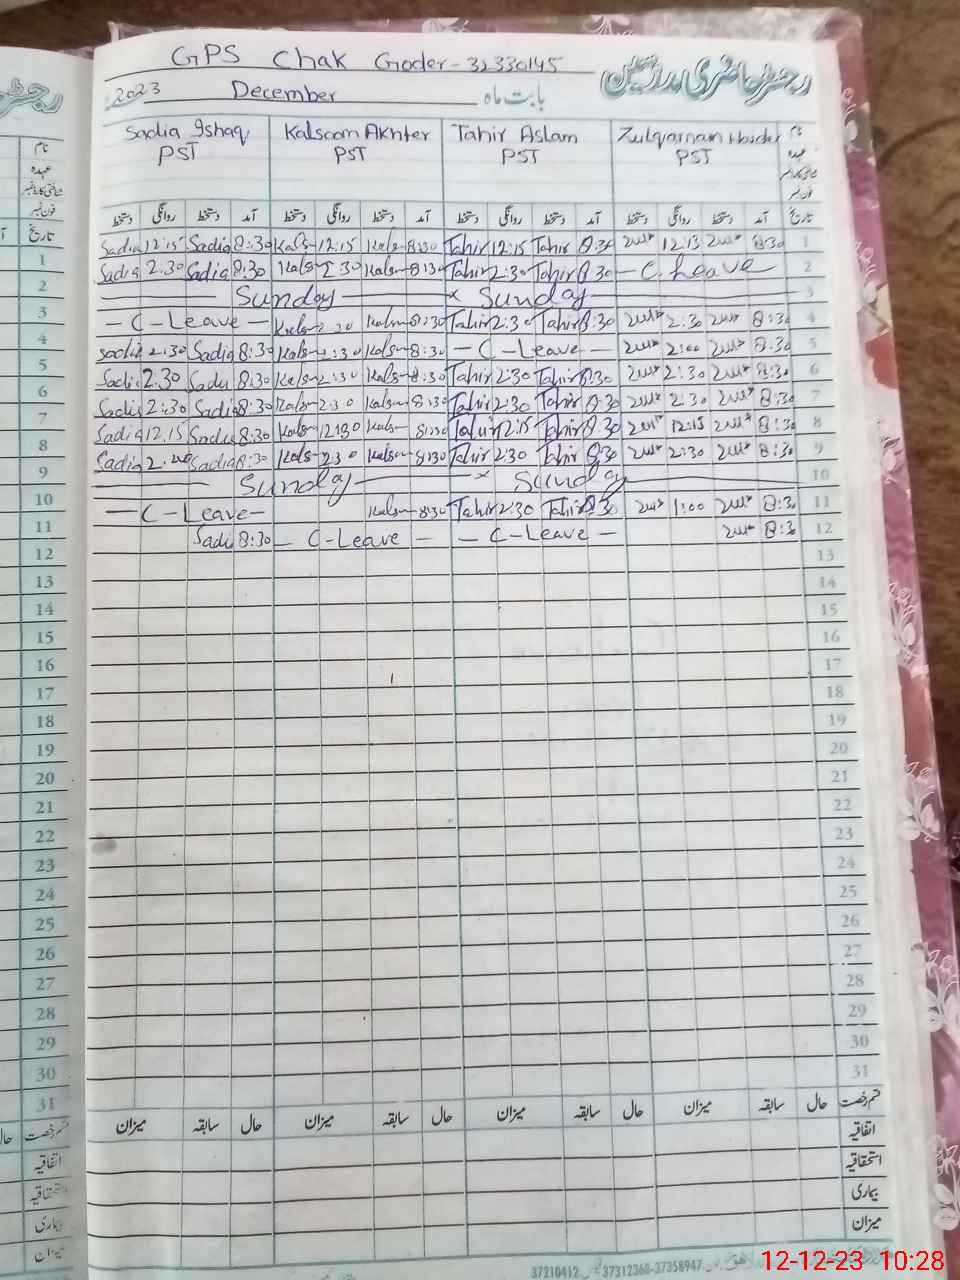 GPS Chak Goder - 32330145
رجسٹر حاضری مدرسین
2023 December بابت ماہ
Sadia Ishaq Kalsoom Akhter Tahir Aslam Zulqarnain Haider نام
PST PST PST PST عہدہ
فون نمبر
دستخط روانگی دستخط آمد دستخط روانگی دستخط آمد دستخط روانگی دستخط آمد دستخط روانگی دستخط آمد تاریخ
Sadia 12:15 Sadia 8:30 Kals 12:15 Kals 8:30 Tahir 12:15 Tahir 8:30 12:15 8:30 1
Sadia 2:30 Sadia 8:30 Kals 2:30 Kals 8:30 Tahir 2:30 Tahir 8:30 - C. Leave 2
Sunday × Sunday 3
- C - Leave - Kals 2:30 Kals 8:30 Tahir 2:30 Tahir 8:30 2:30 8:30 4
Sadia 2:30 Sadia 8:30 Kals 2:30 Kals 8:30 - C - Leave - 2:00 8:30 5
Sadia 2:30 Sadi 8:30 Kals 2:30 Kals 8:30 Tahir 2:30 Tahir 8:30 2:30 8:30 6
Sadia 2:30 Sadia 8:30 Kals 2:30 Kals 8:30 Tahir 2:30 Tahir 8:30 2:30 8:30 7
Sadia 12.15 Sadia 8:30 Kals 12:30 Kals 8:30 Tahir 12:15 Tahir 8:30 12:15 8:30 8
Sadia Sadia 8:30 Kals 2:30 Kals 8:30 Tahir 2:30 Tahir 8:30 2:30 8:30 9
Sunday × Sunday 10
- C - Leave - Kals 8:30 Tahir 2:30 Tahir 8:30 1:00 8:30 11
Sadi 8:30 - C - Leave - - C - Leave - 8:30 12
13
14
15
16
17
18
19
20
21
22
23
24
25
26
27
28
29
30
31
میزان سابقہ حال میزان سابقہ حال میزان سابقہ حال میزان سابقہ حال قسم رخصت
اتفاقیہ
استحقاقیہ
بیماری
میزان
37210412 37312360-37358947
12-12-23 10:28
نام
عہدہ
فون نمبر
تاریخ
1
2
3
4
5
6
7
8
9
10
11
12
13
14
15
16
17
18
19
20
21
22
23
24
25
26
27
28
29
30
31
حال قسم رخصت
اتفاقیہ
استحقاقیہ
بیماری
میزان